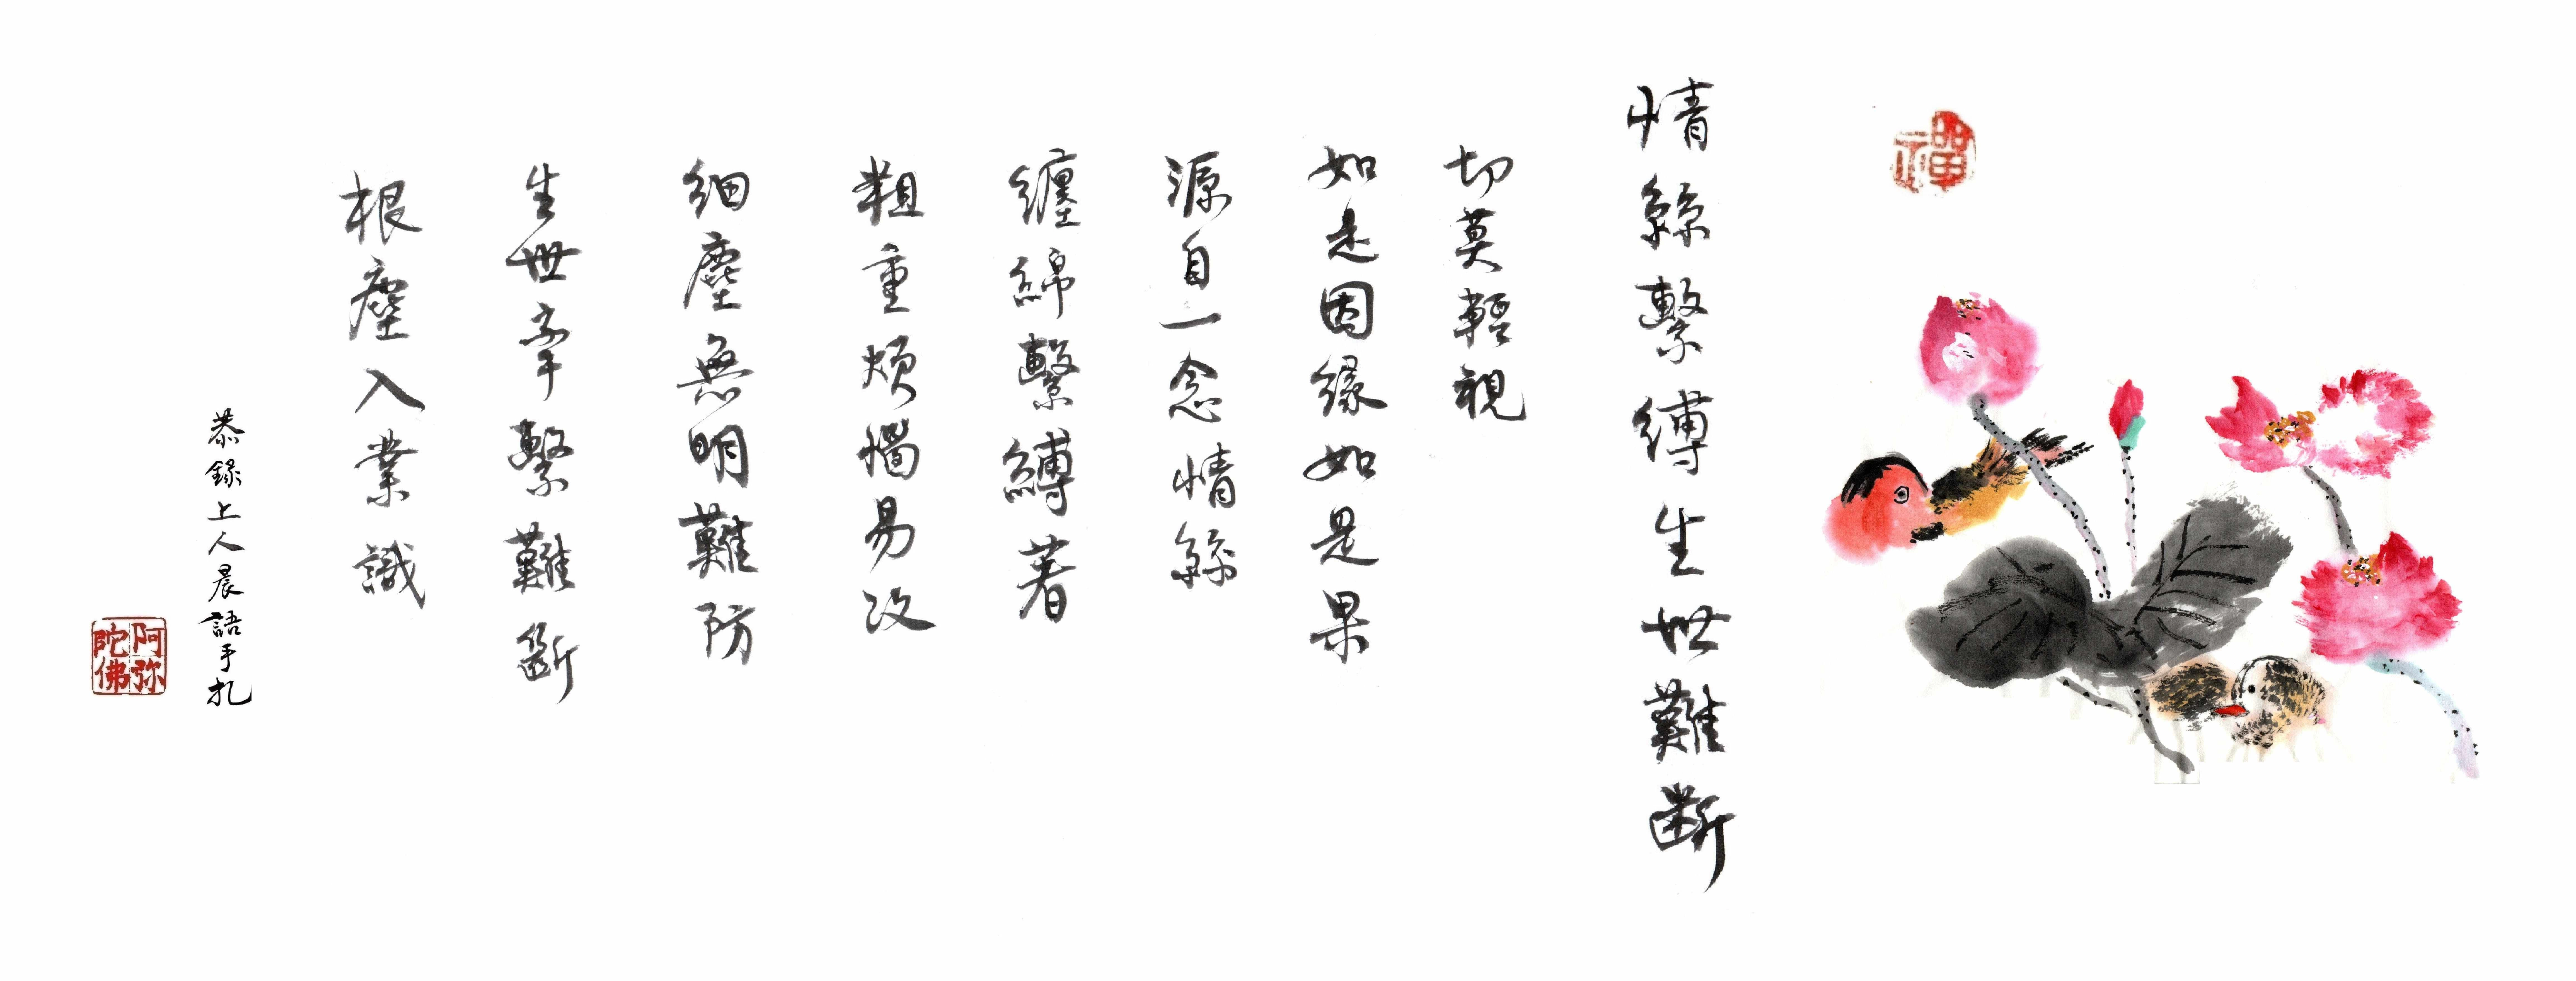 禪
情絲繫縛生世難斷
切莫輕視
如是因緣如是果
源自一念情絲
纏綿繫縛著
粗重煩惱易改
細塵無明難防
生世牽繫難斷
根塵入業識
恭錄上人晨語手札
阿弥陀佛